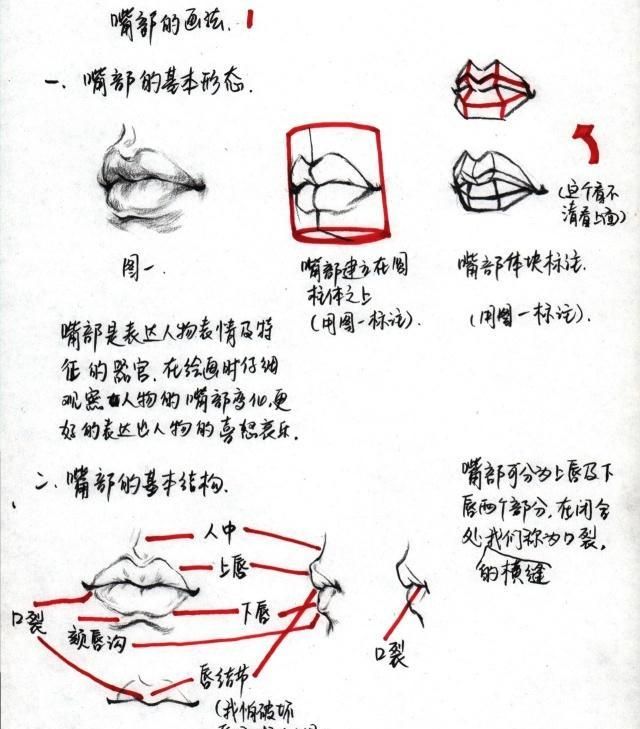 嘴部的画法. 1
一、嘴部的基本形态.
(这个看不
清看上面)
图一.
嘴部建立在圆
柱体之上
(用图一标注).
嘴部体块标法.
(用图一标注).
嘴部是表达人物表情及特
征的器官.在绘画时仔细
观察人物的嘴部变化,更
好的表达出人物的喜怒哀乐.
二、嘴部的基本结构.
嘴部可分为上唇及下
唇两个部分,在闭合
处我们称为口裂.
的横缝
人中
上唇
口裂
下唇
颏唇沟
口裂
唇结节
(我怕破坏